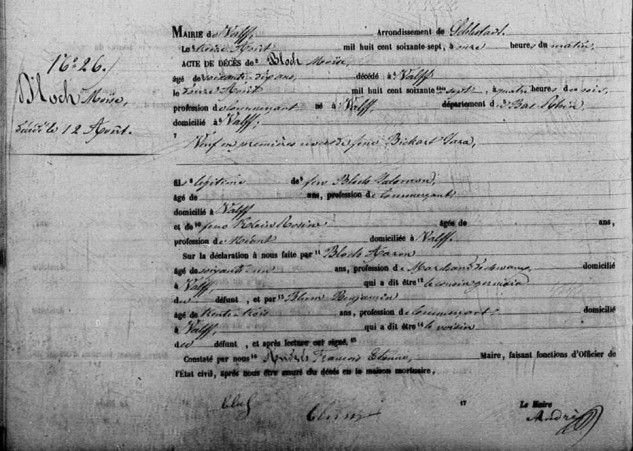 N° 26.
Bloch Moïse,
décédé le 12 Août.
MAIRIE de Valff, Arrondissement de Schlestadt.
Le treize Août mil huit cent soixante-sept, à onze heures du matin,
ACTE DE DÉCÈS de Bloch Moïse,
âgé de soixante dix ans, décédé à Valff
le douze Août mil huit cent soixante sept, à quatre heures du soir,
profession de Commerçant né à Valff, département du Bas Rhin
domicilié à Valff,
Veuf en premières noces de feue Bickart Sara,
fils légitime de feu Bloch Salomon,
âgé de ans, profession de Commerçant
domicilié à Valff
et de feue Klein Rosine âgée de ans,
profession de Néant domiciliée à Valff.
Sur la déclaration à nous faite par Bloch Aaron
âgé de soixante un ans, profession de Marchand de domicilié
à Valff, qui a dit être le cousin germain
du défunt, et par Blum Benjamin
âgé de trente trois ans, profession de Commerçant domicilié
à Valff, qui a dit être le voisin
du défunt, et après lecture ont signé.
Constaté par nous André François Etienne, Maire, faisant fonctions d'Officier de
l'État civil, après nous être assuré du décès en la maison mortuaire,
Le Maire
Bloch Blum André